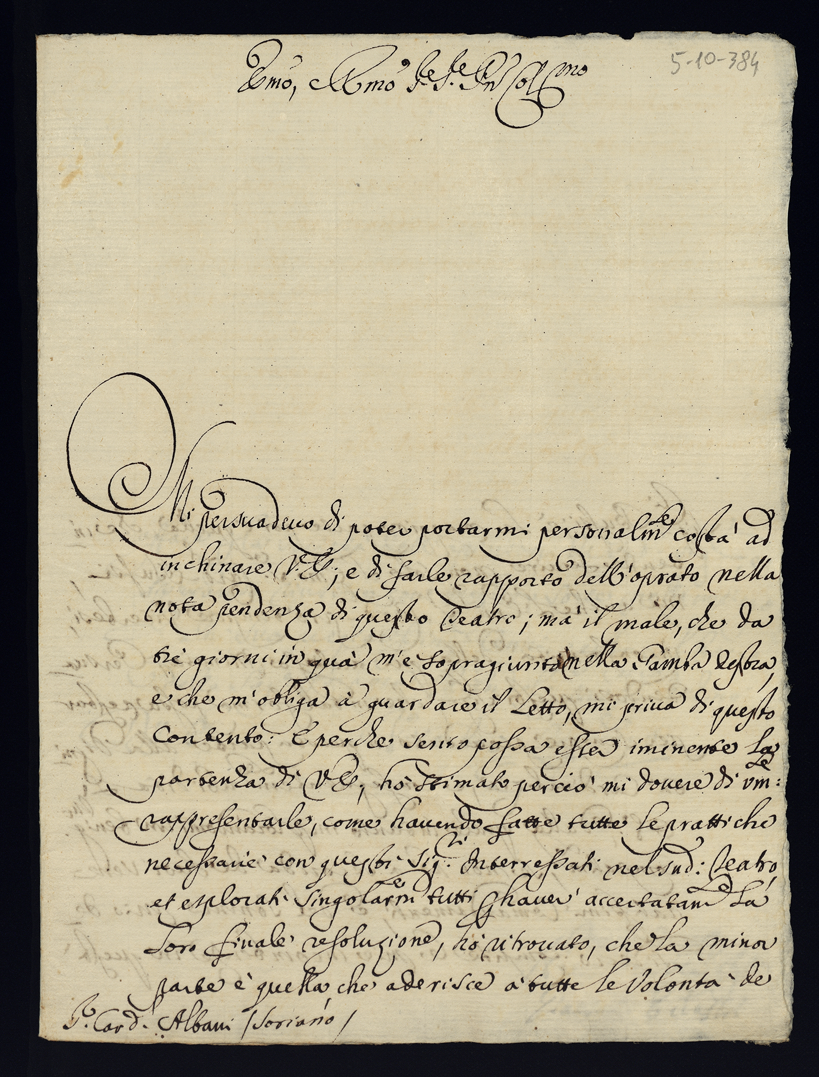 5-10-384
Emo, e Rmo Sre Sre Pn Colmo
Mi persuadevo di poter portarmi personalme costà ad
inchinare V. E.; e di farle rapporto dell'oprato nella
nota pendenza di questo Teatro; mà il male, che da
trè giorni in quà m'è sopragiunto nella Gamba destra,
e che m'obliga à guardare il Letto, mi priva di questo
contento: E perche sento possa esser iminente la
partenza di V. E., hò stimato perciò mi dovere di vmle:
rappresentarle, come havendo fatte tutte le prattiche
necessarie con questi Sigri Interressati nel sud: Teatro
et esplorati singolarme tutti p haver accertatame la
loro finale resoluzione, hò ritrovato, che la minor
parte è quella che aderisce à tutte le Volontà de
Sr. Card. Albani / Soriano /